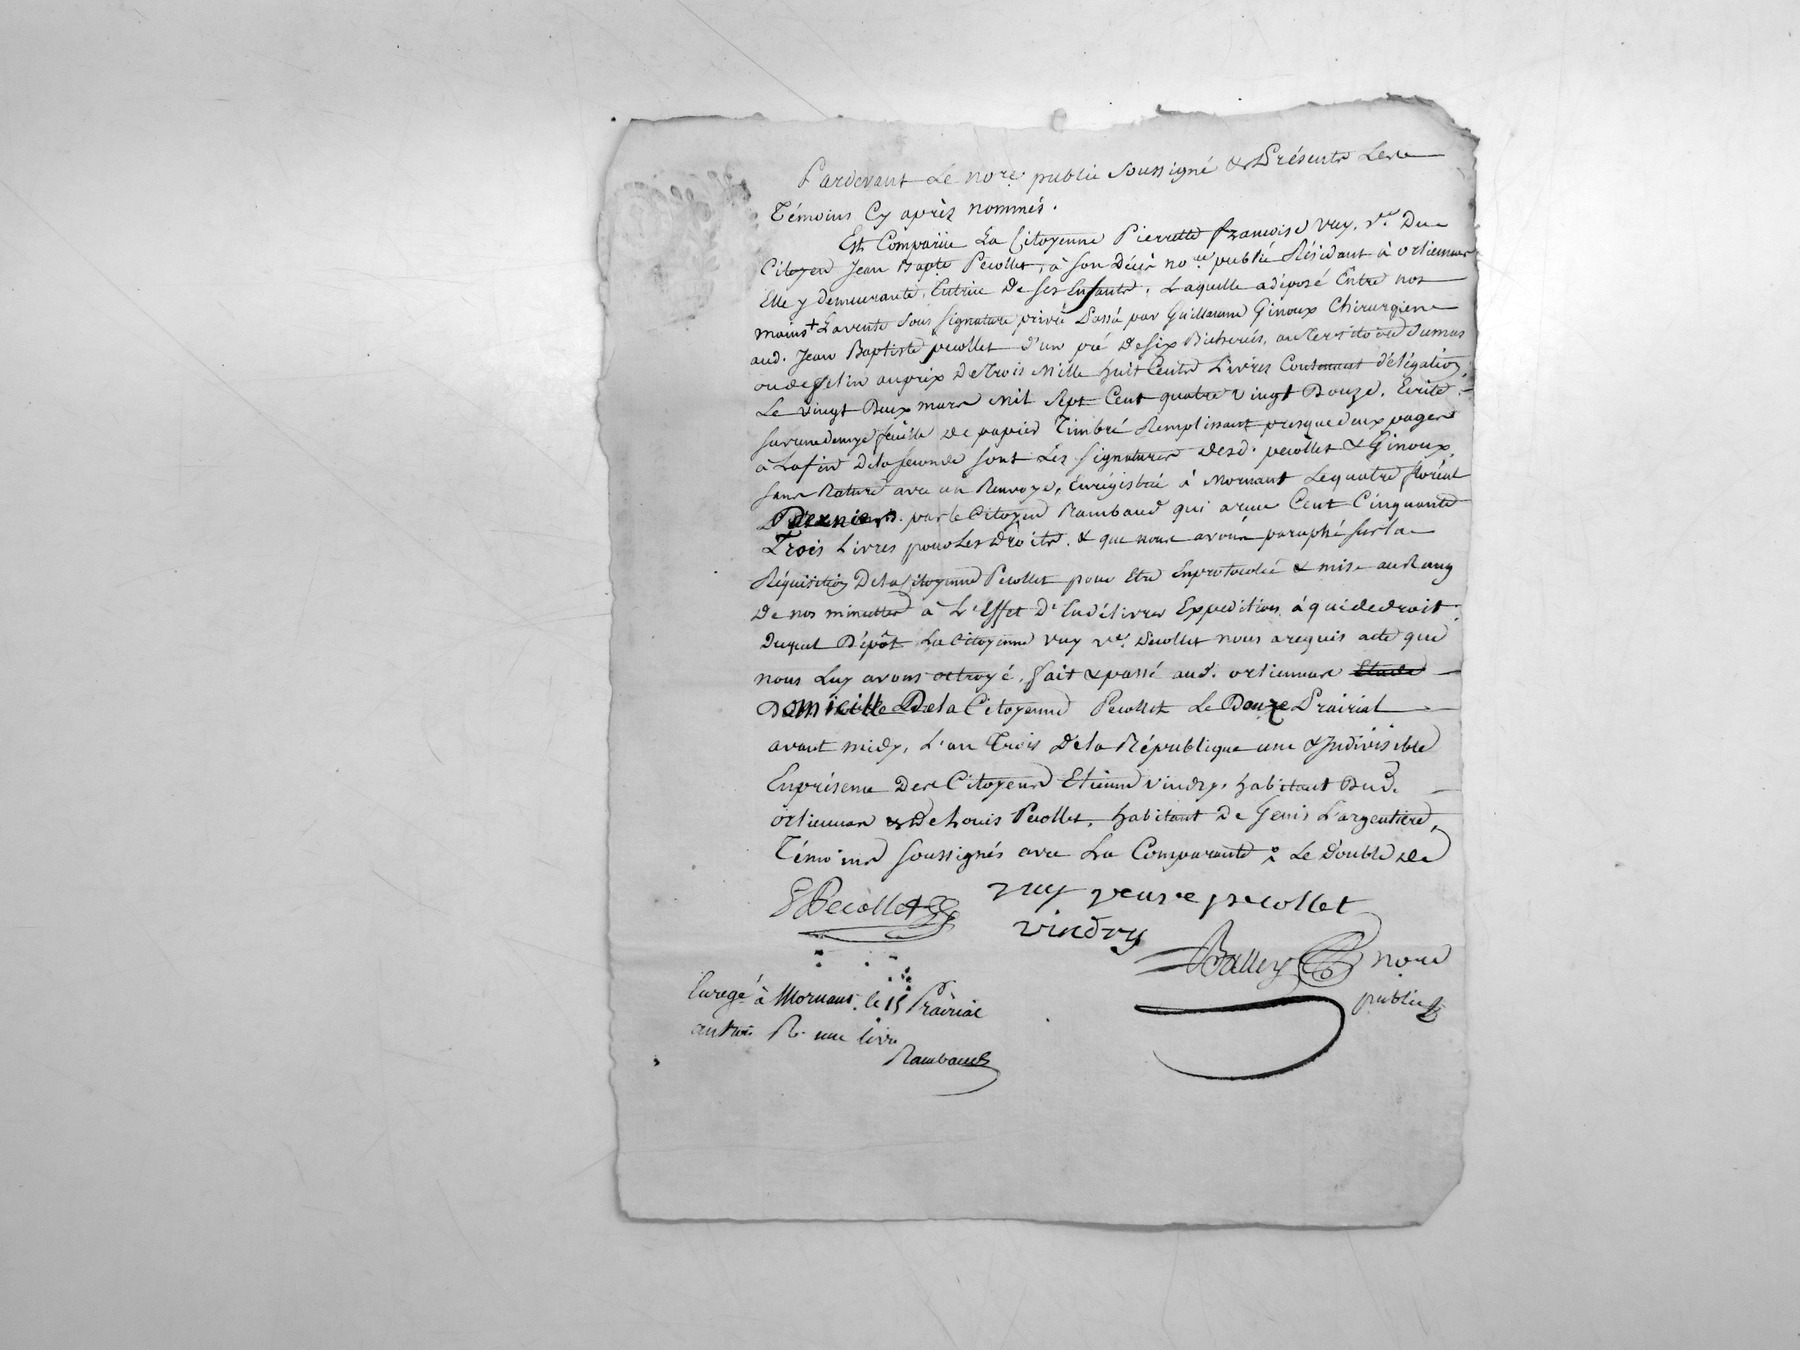 Pardevant Le nore. public soussigné & Présents Les
Témoins Cy après nommés.
Est Comparüe La Citoyenne Pierrette françoise Vuy, Ve. Du
Citoyen Jean Bapte Pecollet, à son Décès nore public Résidant à orliennas
Elle y demeurante, tutrice de ses Enfants, Laquelle a déposé Entre nos
mains + La vente sous signature privée Passé par Guillaume Ginoux Chirurgien
aud. Jean Baptiste pecollet d'un pré de six Bicherés, au Territoire Dumas
ou de gelin au prix de Trois Mille huit Cents Livres Contenant délégation,
Le vingt Deux mars Mil Sept Cent quatre vingt Douze, Ecrite
sur une demye feuille de papier Timbré Remplissant presque deux pages
à La fin de la seconde sont Les signatures desd. pecollet & Ginoux,
sans Rature avec un Renvoye, Enrégistrée à Mornant Le quatre floréal
Dernier. par le Citoyen Rambaud qui a reçu Cent Cinquante
Trois Livres pour Les Droits. & que nous avons paraphé sur la
Réquisition De la Citoyenne Pecollet pour Etre Enprotocolée & mise au Rang
De nos minuttes à L'Effet D'En délivrer Expedition à qui de droit.
Duquel Dépôt La Citoyenne Vuy Ve. Pecollet nous a requis acte que
nous Luy avons octroyé, fait & passé aud. orlienas Etude
Domicille De la Citoyenne Pecollet Le Douze Prairial
avant midy, L'an Trois De la République une & Indivisible
En présence Des Citoyens Etienne Vindry, habitant Dud.
orlienas & De Louis Pecollet, habitant De Genis L'argentiere,
Témoins soussignés avec La Comparante Le Double de
Pecollet vuy veuve pecollet
vindry
Balley nore
public
Enregé à Mornant le 15 Prairial
an trois R. une livre
Rambaud